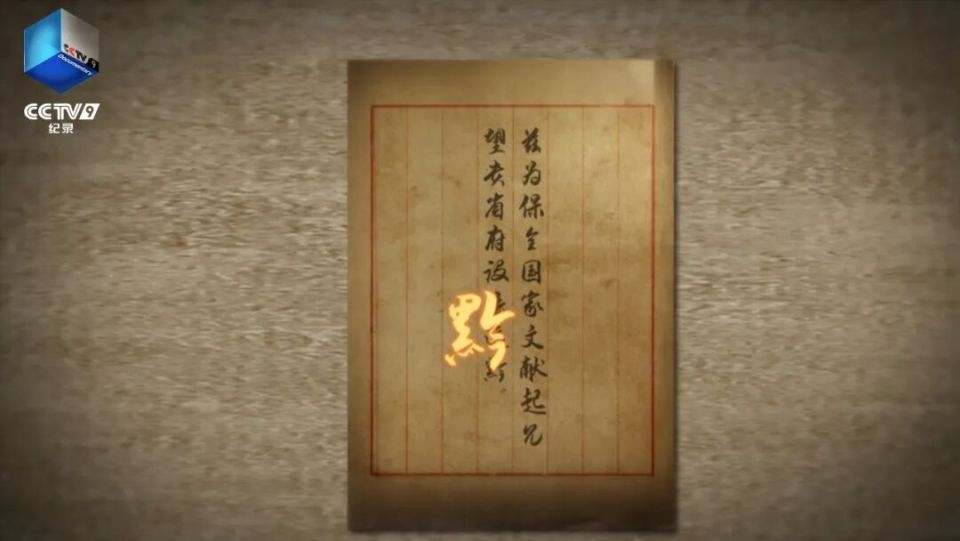 CCTV 9
Documentary
CCTV9
纪录
兹为保全国家文献起见
望贵省府设黔。
黔